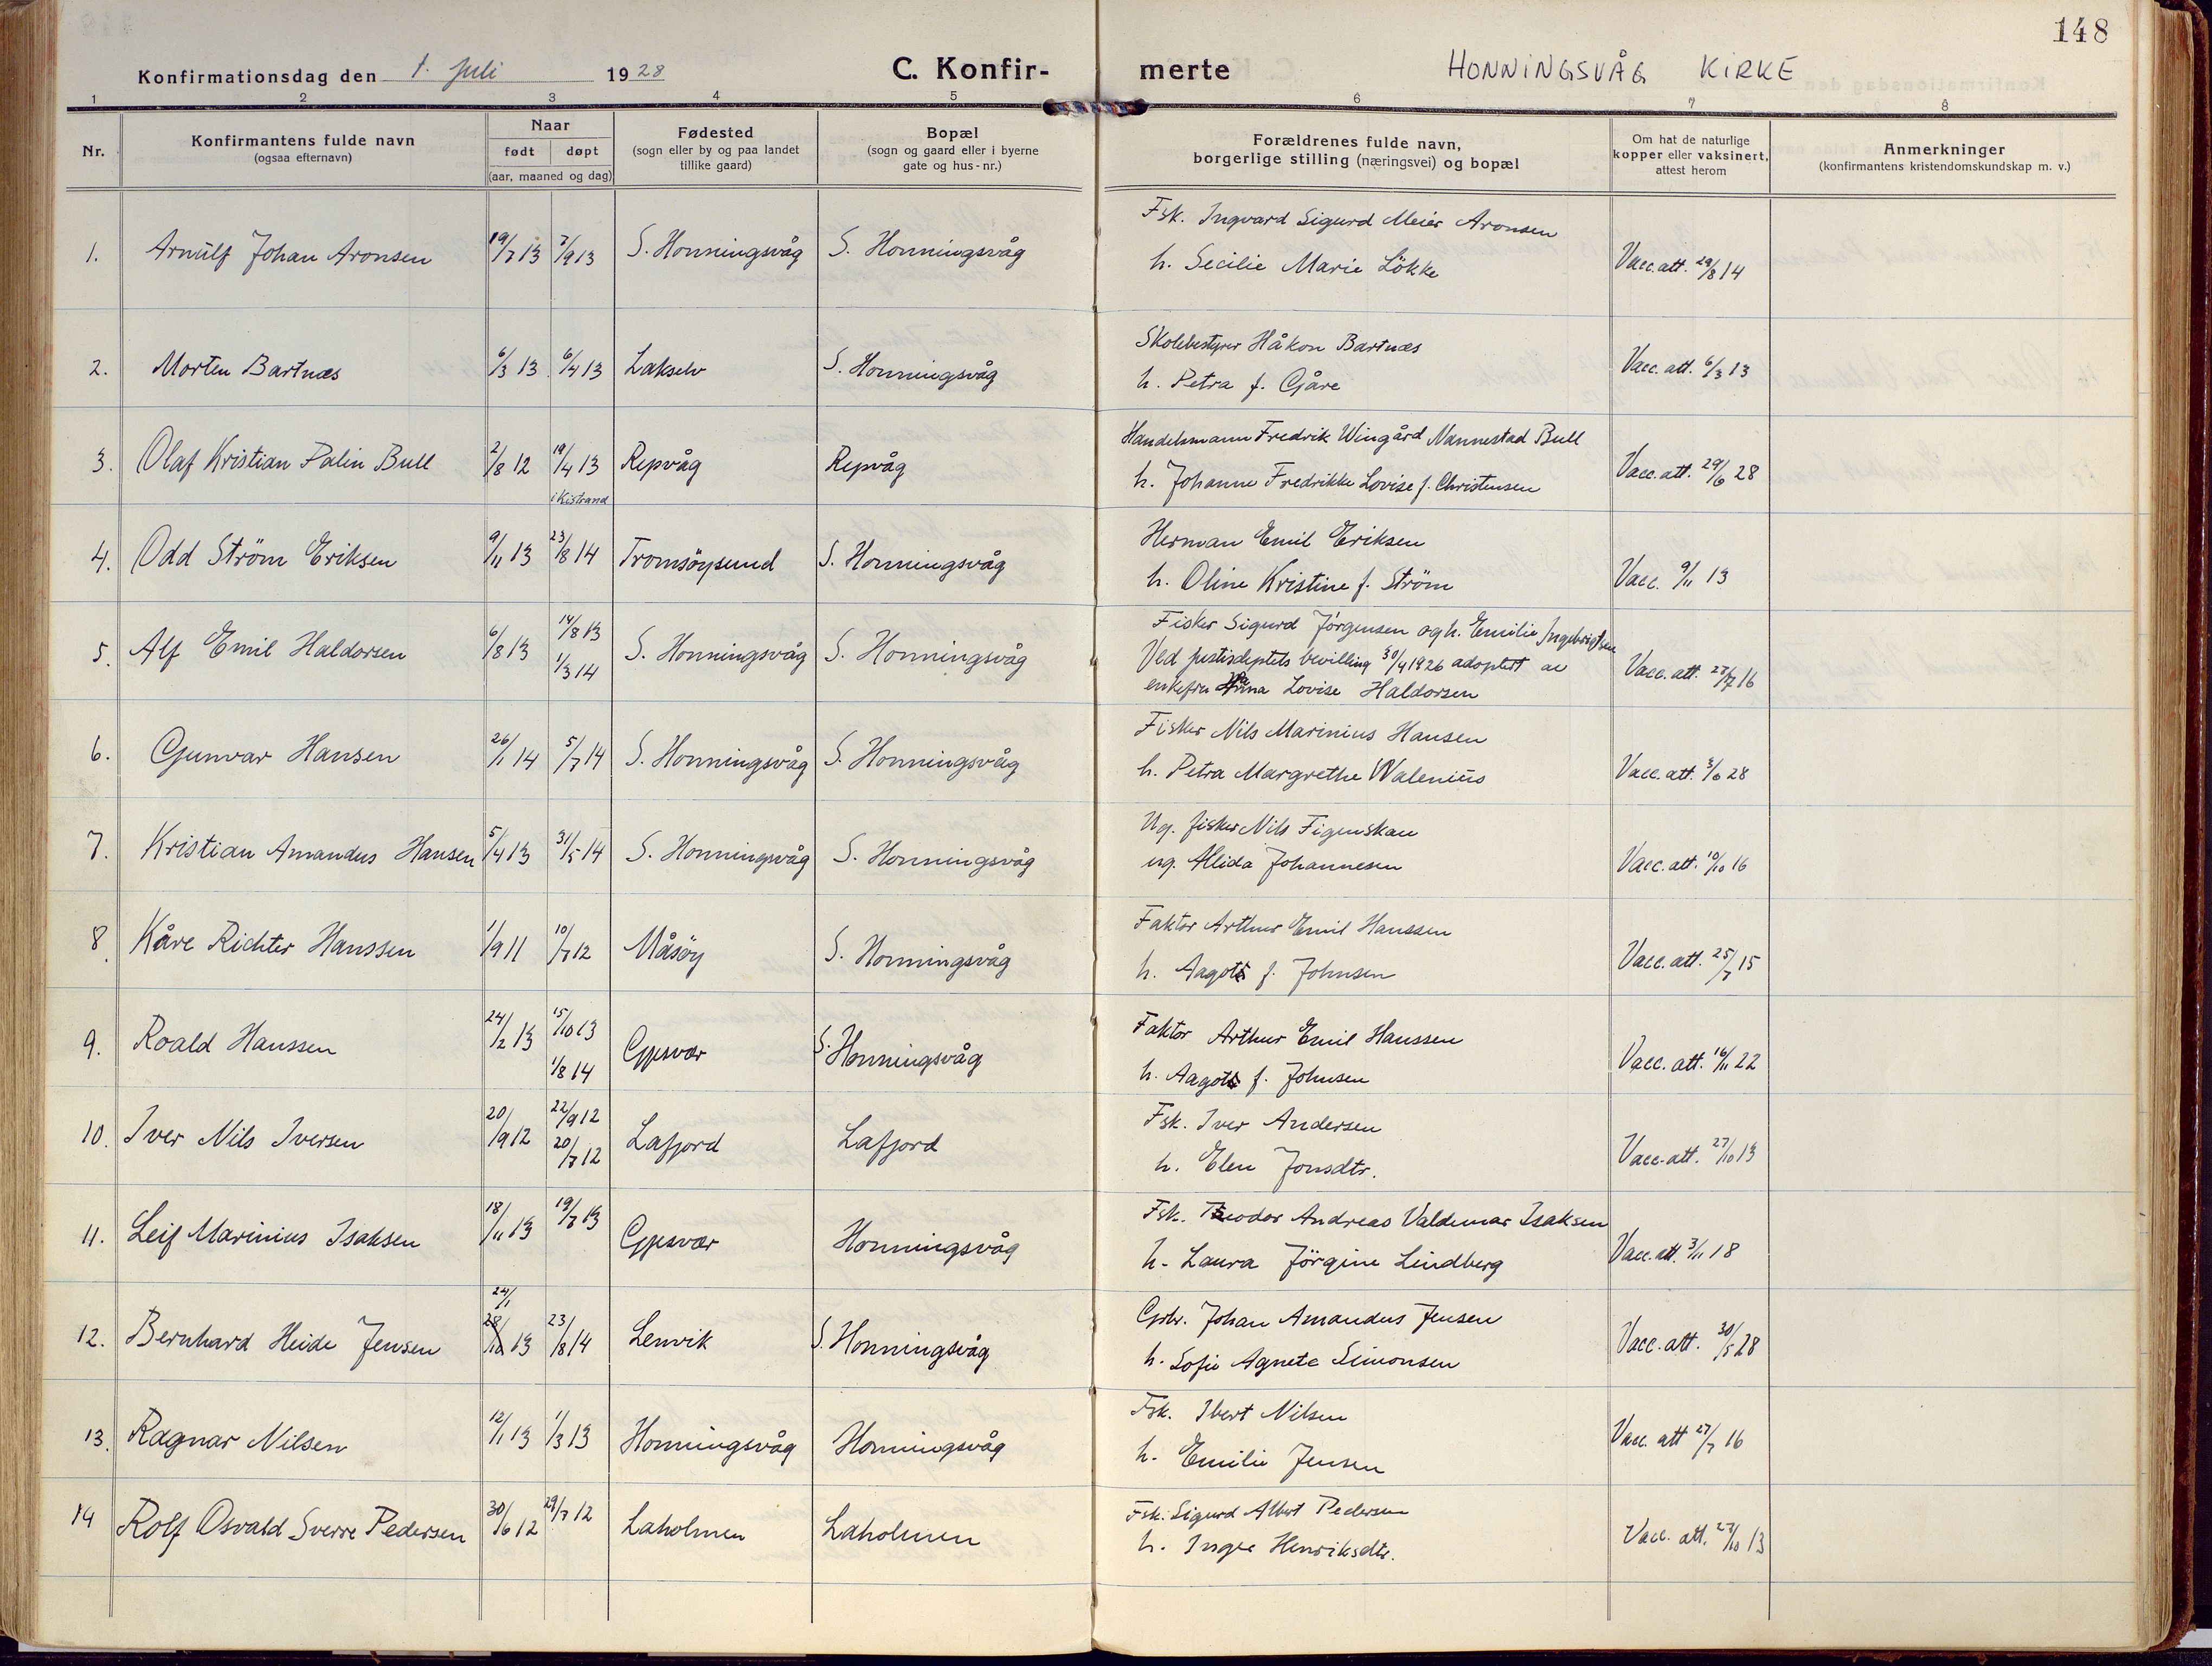 148
Konfirmationsdag den 1. juli 1928 C. Konfir- merte HONNINGSVÅG KIRKE
1 2 3 4 5 6 7 8
Nr.
Konfirmantens fulde navn
(ogsaa efternavn)
Naar
født døpt
(aar, maaned og dag)
Fødested
(sogn eller by og paa landet
tillike gaard)
Bopæl
(sogn og gaard eller i byerne
gate og hus-nr.)
Forældrenes fulde navn,
borgerlige stilling (næringsvei) og bopæl
Om hat de naturlige
kopper eller vaksinert,
attest herom
Anmerkninger
(konfirmantens kristendomskundskap m. v.)
Fsk. Ingvard Sigurd Meier Aronsen
1. Arnulf Johan Aronsen 19/7 13 7/9 13 S. Honningsvåg S. Honningsvåg
h. Secilie Marie Lökke Vacc. att. 29/8 14
Skolebestyrer Håkon Bartnæs
2. Morten Bartnæs 6/3 13 6/4 13 Lakselv S. Honningsvåg
h. Petra f. Gjåre Vacc. att. 6/3 13
Handelsmann Fredrik Wingård Nannestad Bull
3. Olaf Kristian Palin Bull 2/8 12 19/4 13 Repvåg Repvåg
i Kistrand
h. Johanne Fredrikke Lovise f. Christensen Vacc. att. 29/6 28
Herman Emil Eriksen
4. Odd Ström Eriksen 9/11 13 23/8 14 Tromsöysund S. Honningsvåg
h. Oline Kristine f. Ström Vacc. 9/11 13
Fisker Sigurd Jörgensen og h. Emilie Ingebrigtsen
5. Alf Emil Haldorsen 6/8 13 14/8 13 S. Honningsvåg S. Honningsvåg
1/3 14
Ved justisdeptets bevilling 30/4 1926 adoptert av
enkefru Lovise Haldorsen Vacc. att. 27/7 16
Fisker Nils Marinius Hansen
6. Gunvar Hansen 26/1 14 5/7 14 S. Honningsvåg S. Honningsvåg
h. Petra Margrethe Walenius Vacc. att. 3/6 28
Ug. fisker Nils Figenskau
7. Kristian Amandus Hansen 5/4 13 31/5 14 S. Honningsvåg S. Honningsvåg
ug. Alida Johannesen Vacc. att. 10/10 16
Faktor Arthur Emil Hanssen
8. Kåre Richter Hanssen 1/9 11 10/7 12 Måsöy S. Honningsvåg
h. Aagot f. Johnsen Vacc. att. 25/7 15
Faktor Arthur Emil Hanssen
9. Roald Hanssen 24/2 13 15/10 13 Gjesvær S. Honningsvåg
1/8 14
h. Aagot f. Johnsen Vacc. att. 16/11 22
Fsk. Iver Andersen
10. Iver Nils Iversen 20/9 12 22/9 12 Lafjord Lafjord
20/7 12
h. Elen Jonsdtr. Vacc. att. 27/10 13
Fsk. Teodor Andreas Valdemar Isaksen
11. Leif Marinius Isaksen 18/11 13 19/7 13 Gjesvær Honningsvåg
h. Laura Jörgine Lindberg Vacc. att. 3/11 18
24/1
Grbr. Johan Amandus Jensen
12. Bernhard Heide Jensen 28/10 13 23/8 14 Lenvik S. Honningsvåg
h. Sofie Agnete Simonsen Vacc. att. 30/5 28
Fsk. Ibert Nilsen
13. Ragnar Nilsen 12/1 13 1/3 13 Honningsvåg Honningsvåg
h. Emilie Jensen Vacc. att 27/7 16
Fsk. Sigurd Albert Pedersen
14 Rolf Osvald Sverre Pedersen 30/6 12 29/7 12 Laholmen Laholmen
h. Inga Henriksdtr. Vacc. att. 27/10 13